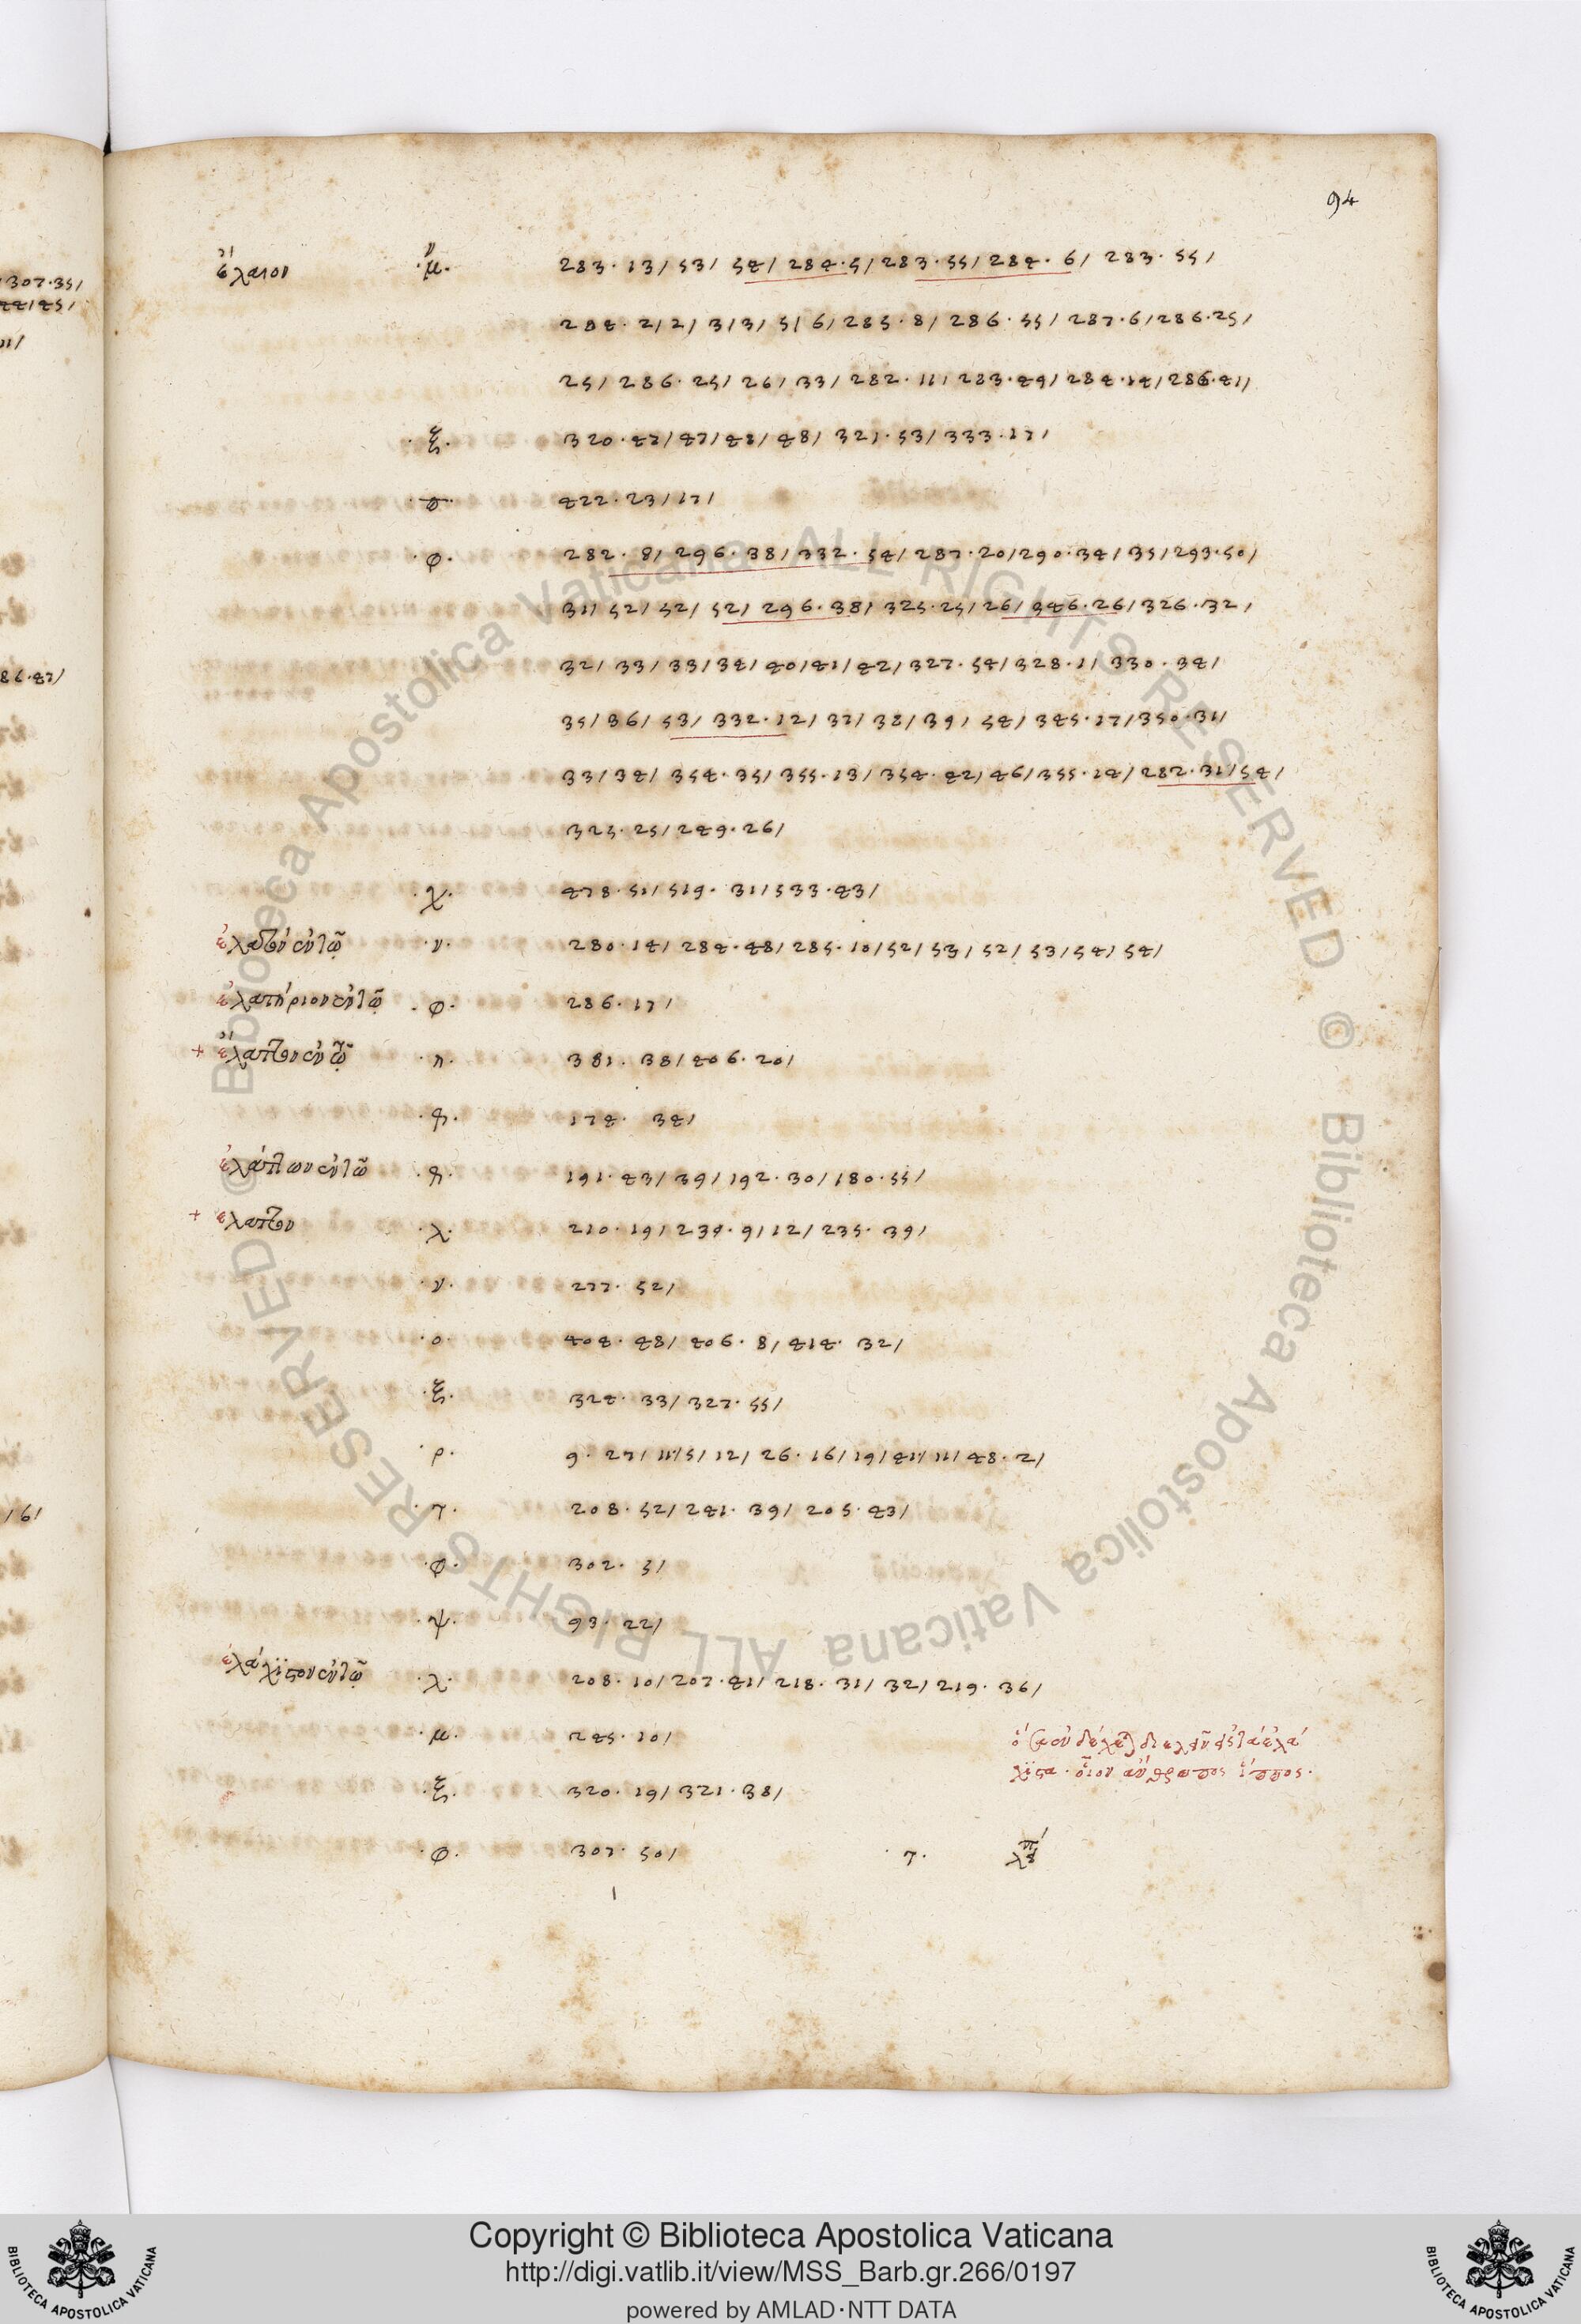 94
ἔλαιον ·μ̈· 283·13/53/54/284·5/283·55/284·6/283·55/
284·2/2/3/3/5/6/285·8/286·55/287·6/286·25/
25/286·25/26/33/282·11/283·49/284·14/286·41/
·ξ· 320·47/47/48/48/321·53/333·17/
422·23/17/
·φ· 282·8/296·38/332·54/287·20/290·34/35/293·50/
31/52/52/52/296·38/325·25/26/346·26/326·32/
32/33/33/34/40/41/42/327·54/328·1/330·34/
35/36/53/332·12/37/38/39/54/345·17/350·31/
33/34/354·35/355·13/354·42/46/355·14/282·31/54/
323·25/249·26/
·χ· 478·51/519·31/533·43/
·ν· 280·14/284·48/285·10/52/53/52/53/54/54/
ἐλατήριον ἐν τῷ ·φ· 286·17/
+ ἔλαττον ἐν τῷ ·η· 381·38/406·20/
174·34/
ἐλάττων ἐν τῷ 191·43/39/192·30/180·55/
+ ἔλαττον ·λ· 210·19/234·9/12/235·39/
·ν· 277·52/
·ο· 404·48/406·8/414·32/
·ξ· 324·33/327·55/
·ρ· 9·27/11/5/12/26·16/19/41/11/48·2/
·τ· 208·52/241·39/205·43/
·φ· 302·5/
·ψ· 93·22/
ἐλάχιστον ἐν τῷ ·λ· 208·10/207·41/218·31/32/219·36/
·μ· 245·10/
·ξ· 320·19/321·38/
·φ· 307·50/ ·τ·
εἰς τὰ ἐλά
χιστα· οἷον ἄνθρωπος ἵππος·
307·35/
86·47/
/6/
Copyright © Biblioteca Apostolica Vaticana
http://digi.vatlib.it/view/MSS_Barb.gr.266/0197
powered by AMLAD·NTT DATA
BIBLIOTECA APOSTOLICA VATICANA
BIBLIOTECA APOSTOLICA VATICANA
© Biblioteca Apostolica Vaticana ALL RIGHTS RESERVED © Biblioteca Apostolica Vaticana ALL RIGHTS RESERVED